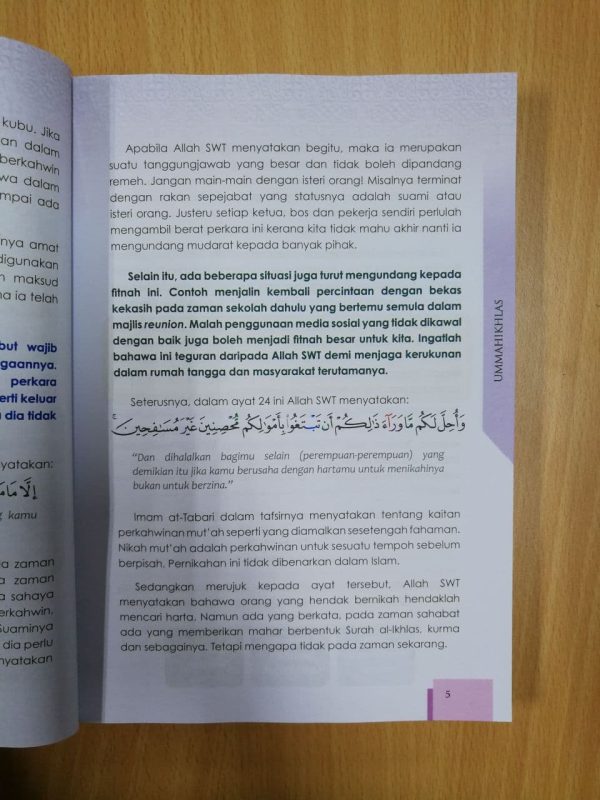 kubu. Jika
an dalam
berkahwin
wa dalam
mpai ada
nya amat
digunakan
n maksud
na ia telah
but wajib
gaannya.
perkara
erti keluar
a dia tidak
yatakan:
إِلَّا مَا مَ
g kamu
a zaman
a zaman
a sahaya
erkahwin,
Suaminya
dia perlu
nyatakan
Apabila Allah SWT menyatakan begitu, maka ia merupakan
suatu tanggungjawab yang besar dan tidak boleh dipandang
remeh. Jangan main-main dengan isteri orang! Misalnya terminat
dengan rakan sepejabat yang statusnya adalah suami atau
isteri orang. Justeru setiap ketua, bos dan pekerja sendiri perlulah
mengambil berat perkara ini kerana kita tidak mahu akhir nanti ia
mengundang mudarat kepada banyak pihak.
Selain itu, ada beberapa situasi juga turut mengundang kepada
fitnah ini. Contoh menjalin kembali percintaan dengan bekas
kekasih pada zaman sekolah dahulu yang bertemu semula dalam
majlis reunion. Malah penggunaan media sosial yang tidak dikawal
dengan baik juga boleh menjadi fitnah besar untuk kita. Ingatlah
bahawa ini teguran daripada Allah SWT demi menjaga kerukunan
dalam rumah tangga dan masyarakat terutamanya.
Seterusnya, dalam ayat 24 ini Allah SWT menyatakan:
وَأُحِلَّ لَكُم مَّا وَرَآءَ ذَٰلِكُمْ أَن تَبْتَغُوا۟ بِأَمْوَٰلِكُم مُّحْصِنِينَ غَيْرَ مُسَٰفِحِينَ ۚ
"Dan dihalalkan bagimu selain (perempuan-perempuan) yang
demikian itu jika kamu berusaha dengan hartamu untuk menikahinya
bukan untuk berzina."
Imam at-Tabari dalam tafsirnya menyatakan tentang kaitan
perkahwinan mut'ah seperti yang diamalkan sesetengah fahaman.
Nikah mut'ah adalah perkahwinan untuk sesuatu tempoh sebelum
berpisah. Pernikahan ini tidak dibenarkan dalam Islam.
Sedangkan merujuk kepada ayat tersebut, Allah SWT
menyatakan bahawa orang yang hendak bernikah hendaklah
mencari harta. Namun ada yang berkata, pada zaman sahabat
ada yang memberikan mahar berbentuk Surah al-Ikhlas, kurma
dan sebagainya. Tetapi mengapa tidak pada zaman sekarang.
UMMAH!KHLAS
5